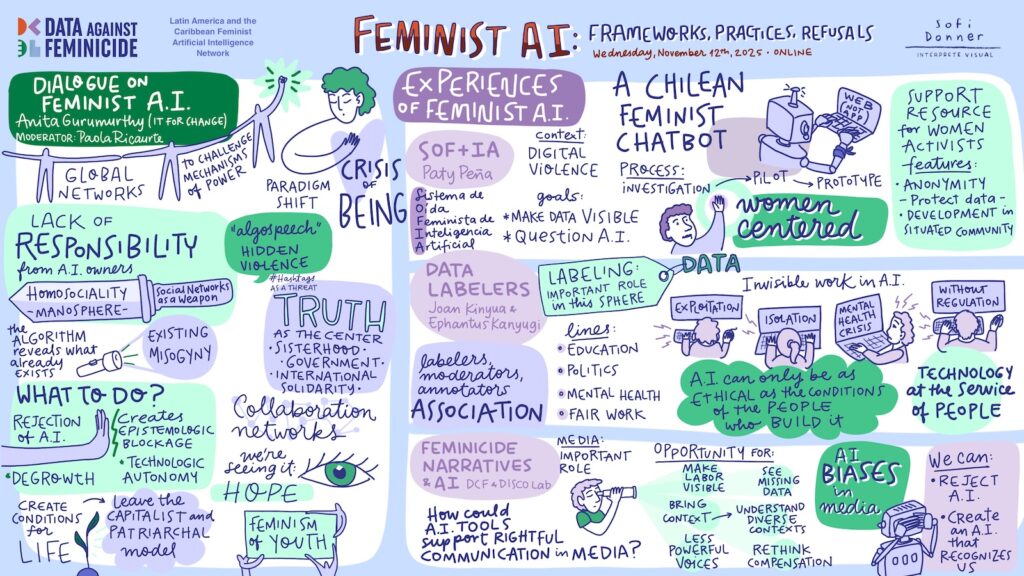 DATA AGAINST
FEMINICIDE
Latin America and the
Caribbean Feminist
Artificial Intelligence
Network
FEMINIST AI: FRAMEWORKS, PRACTICES, REFUSALS
Wednesday, November 12th, 2025 · ONLINE
Sofi
Donner
INTERPRETE VISUAL
DIALOGUE ON
FEMINIST A.I.
Anita Gurumurthy (IT FOR CHANGE)
MODERATOR: Paola Ricaurte
GLOBAL
NETWORKS
TO CHALLENGE
MECHANISMS
OF POWER
PARADIGM
SHIFT
CRISIS
OF
BEING
LACK OF
RESPONSIBILITY
from A.I. owners
HOMOSOCIALITY
-MANOSPHERE-
Social Networks
as a weapon
"algospeech"
HIDDEN
VIOLENCE
#Hashtags
AS A THREAT
the
ALGORITHM
reveals what
already
EXISTS
EXISTING
MISOGYNY
TRUTH
AS THE CENTER
· SISTERHOOD ·
· GOVERNMENT ·
· INTERNATIONAL
SOLIDARITY ·
WHAT TO DO?
REJECTION
OF A.I.
Creates
EPISTEMOLOGIC
BLOCKAGE
· TECHNOLOGIC
AUTONOMY
· DEGROWTH
Collaboration
networks
we're
seeing it
HOPE
CREATE
CONDITIONS
for
LIFE
Leave the
CAPITALIST and
PATRIARCHAL
model
FEMINISM
OF YOUTH
EXPERIENCES
OF FEMINIST A.I.
SOF+IA
Paty Peña
Sistema de
Oída
Feminista de
Inteligencia
Artificial
Context:
DIGITAL
VIOLENCE
goals:
* MAKE DATA VISIBLE
* Question A.I.
A CHILEAN
FEMINIST
CHATBOT
PROCESS:
INVESTIGATION
PILOT
PROTOTYPE
WEB
NOT
APP
women
centered
SUPPORT
RESOURCE
for WOMEN
ACTIVISTS
features:
· ANONYMITY
- Protect data -
· DEVELOPMENT in
SITUATED COMMUNITY
DATA
LABELERS
Joan Kinyua &
Ephantus Kanyugi
LABELING:
IMPORTANT ROLE
in this SPHERE
DATA
labelers,
moderators,
annotators
ASSOCIATION
lines:
EDUCATION
POLITICS
MENTAL HEALTH
FAIR WORK
Invisible work in A.I.
EXPLOITATION
ISOLATION
MENTAL
HEALTH
CRISIS
WITHOUT
REGULATION
A.I. can only be as
ETHICAL as the CONDITIONS
of the PEOPLE
who BUILD it
TECHNOLOGY
at the SERVICE
of PEOPLE
FEMINICIDE
NARRATIVES
& AI DCF & DISCO Lab
MEDIA:
IMPORTANT
ROLE
How could
A.I. TOOLS
support RIGHTFUL
COMMUNICATION in MEDIA?
OPPORTUNITY FOR:
MAKE
LABOR
VISIBLE
SEE
MISSING
DATA
BRING
CONTEXT
UNDERSTAND
DIVERSE
CONTEXTS
LESS
POWERFUL
VOICES
RETHINK
COMPENSATION
AI
BIASES
in
media
We can:
· REJECT
A.I.
· Create
an A.I.
that
RECOGNIZES
US